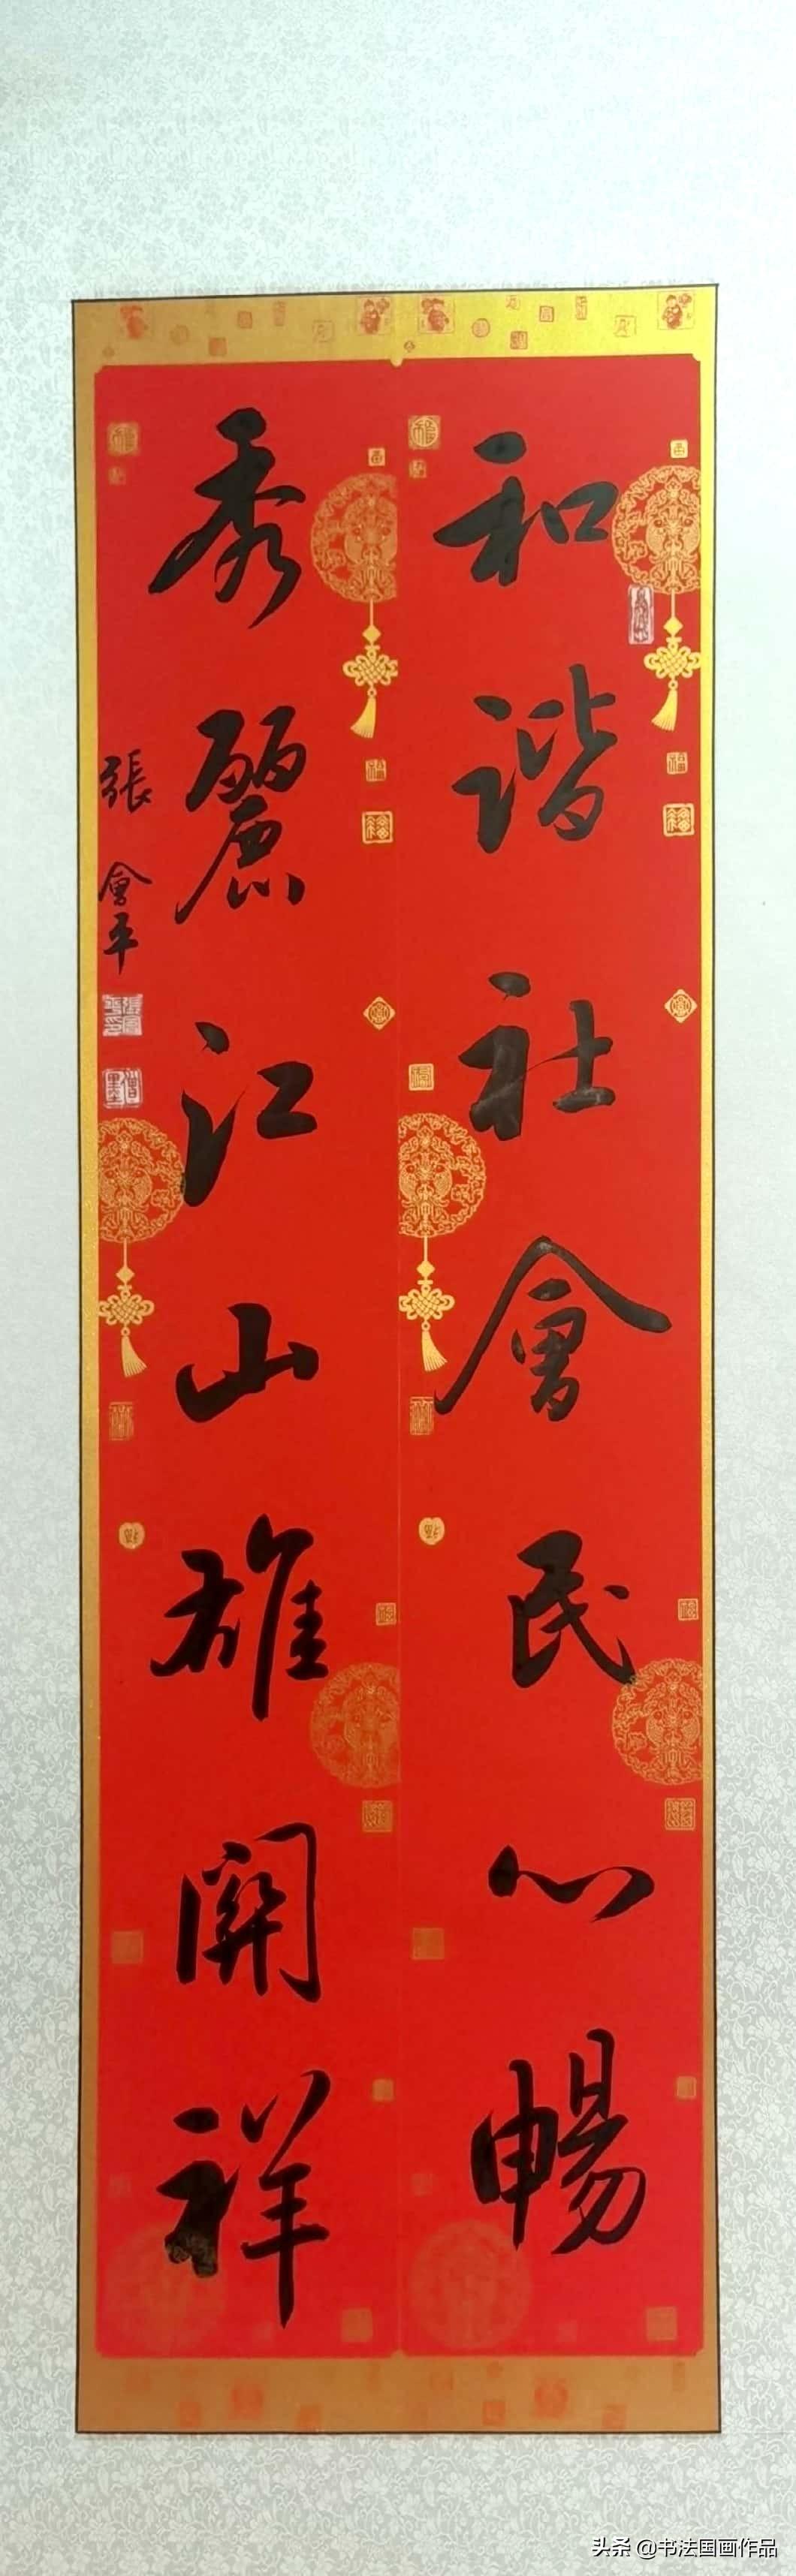 和諧社會民心暢
秀麗江山雄關祥
張會平
头条 @书法国画作品